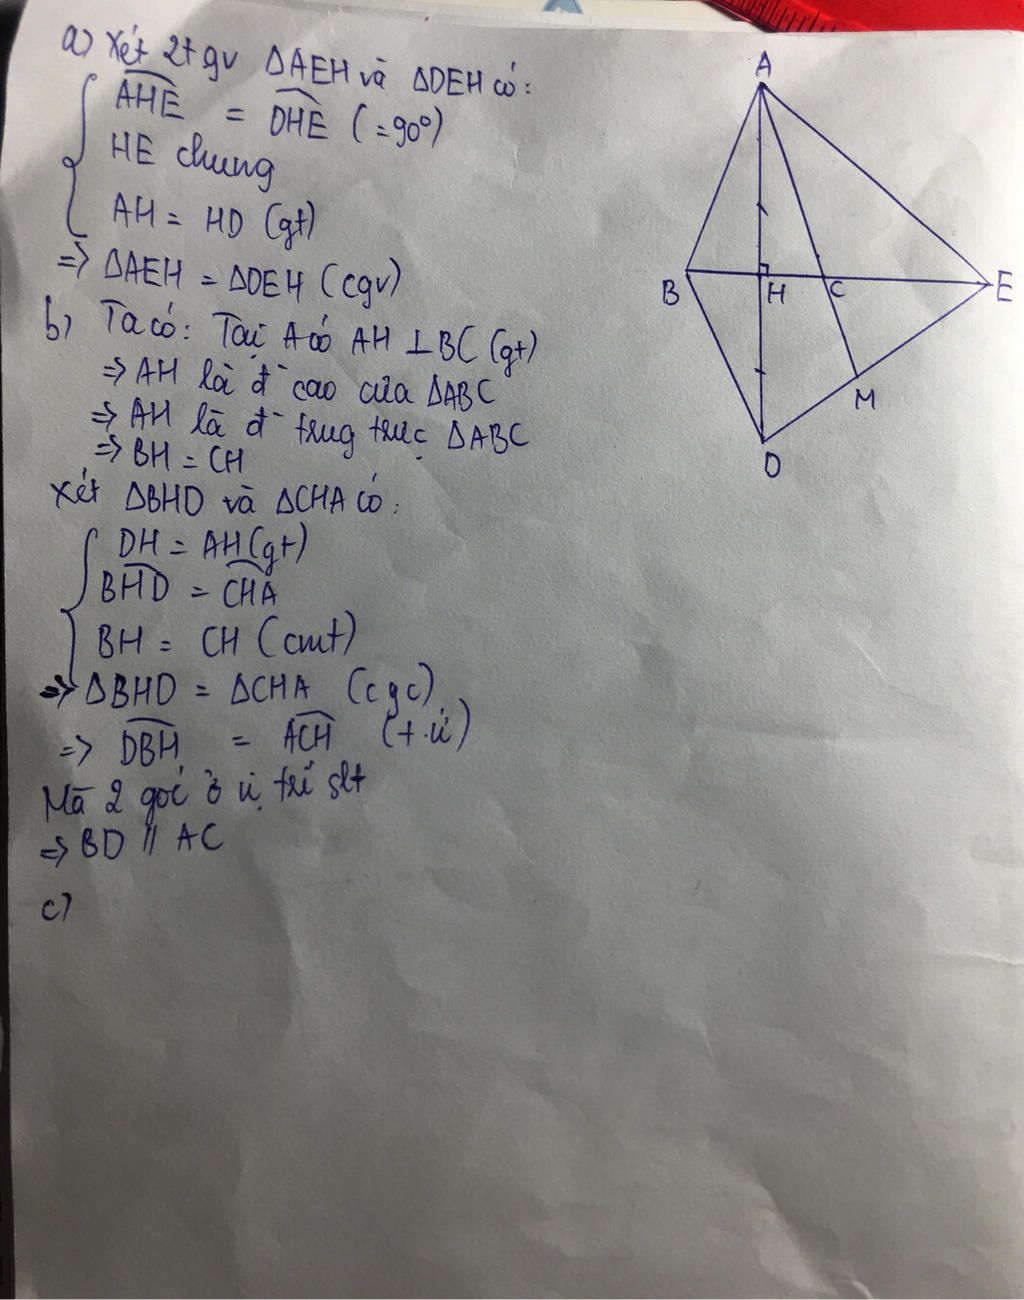 a) Xét 2t gv ΔAEH và ΔDEH có:
AHE = DHE (=90°)
HE chung
AH = HD (gt)
=> ΔAEH = ΔDEH (cgv)
b) Ta có: Tại A có AH ⊥ BC (gt)
=> AH là đ̄ cao của ΔABC
=> AH là đ̄ trug trực ΔABC
=> BH = CH
Xét ΔBHD và ΔCHA có:
DH = AH (gt)
BHD = CHA
BH = CH (cmt)
=> ΔBHD = ΔCHA (cgc)
=> DBH = ACH (t.ứ)
Mà 2 góc ở vị trí slt
=> BD // AC
c)
A
B
H
C
E
M
D